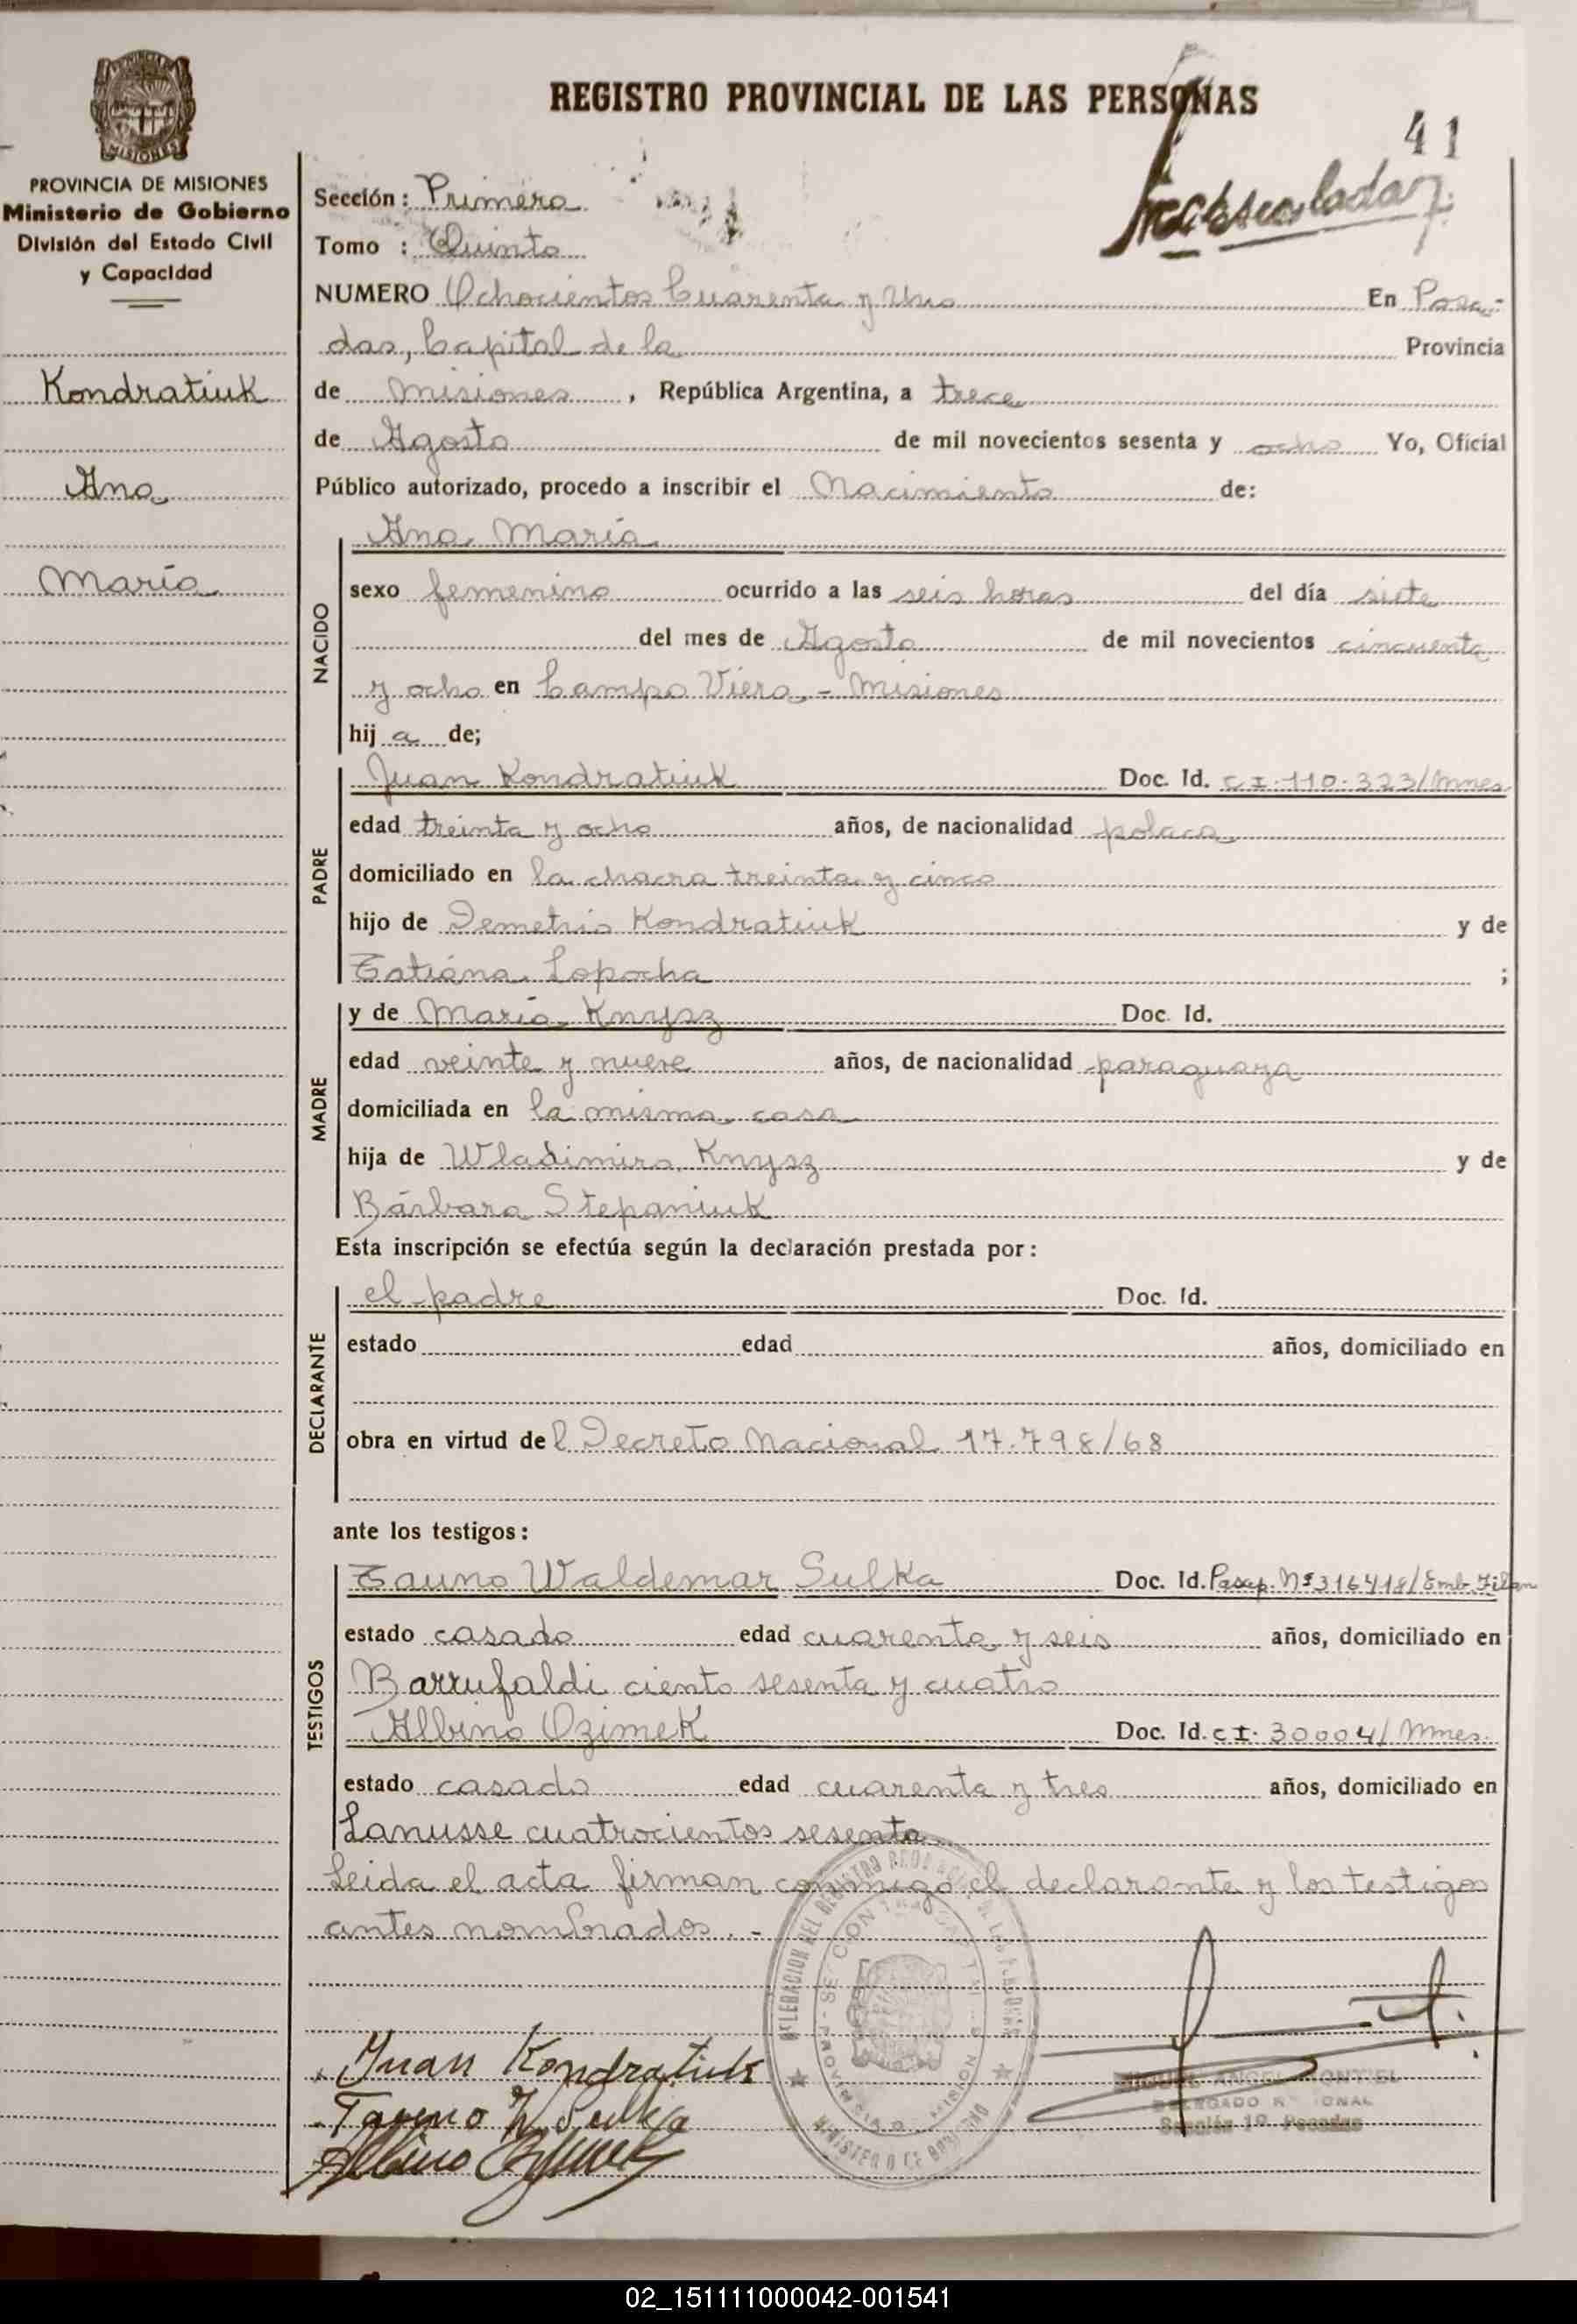 REGISTRO PROVINCIAL DE LAS PERSONAS
41
PROVINCIA DE MISIONES
Ministerio de Gobierno
División del Estado Civil
y Capacidad
Kondratiuk
Ana
María
Sección: Primera
Tomo : Quinto
NUMERO Ochocientos Cuarenta y Uno En Posa-
das, Capital de la Provincia
de Misiones, República Argentina, a trece
de Agosto de mil novecientos sesenta y ocho Yo, Oficial
Público autorizado, procedo a inscribir el Nacimiento de:
NACIDO
Ana María
sexo femenino ocurrido a las seis horas del día siete
del mes de Agosto de mil novecientos cincuenta
y ocho en Campo Viera - Misiones
hij a de;
PADRE
Juan Kondratiuk Doc. Id. C I. 110.323/Mnes
edad treinta y ocho años, de nacionalidad polaca
domiciliado en la chacra treinta y cinco
hijo de Demetrio Kondratiuk y de
Tatiana Lopocha ;
MADRE
y de María Knysz Doc. Id.
edad veinte y nueve años, de nacionalidad paraguaya
domiciliada en la misma casa
hija de Wladimiro Knysz y de
Bárbara Stepaniuk
Esta inscripción se efectúa según la declaración prestada por:
DECLARANTE
el padre Doc. Id.
estado edad años, domiciliado en
obra en virtud del Decreto Nacional 17.798/68
ante los testigos:
TESTIGOS
Tauno Waldemar Sulka Doc. Id. Pasap. Nº 316418/Emb. Filan
estado casado edad cuarenta y seis años, domiciliado en
Barrufaldi ciento sesenta y cuatro
Albino Ozimek Doc. Id. C I. 30004/Mnes.
estado casado edad cuarenta y tres años, domiciliado en
Lanusse cuatrocientos sesenta
Leida el acta firman conmigo el declarante y los testigos
antes nombrados. -
Juan Kondratiuk
Tauno W Sulka
Albino Ozimek
MIGUEL ANGEL MONTIEL
Sección 1º Posadas
MINISTERIO DE GOBIERNO
02_151111000042-001541